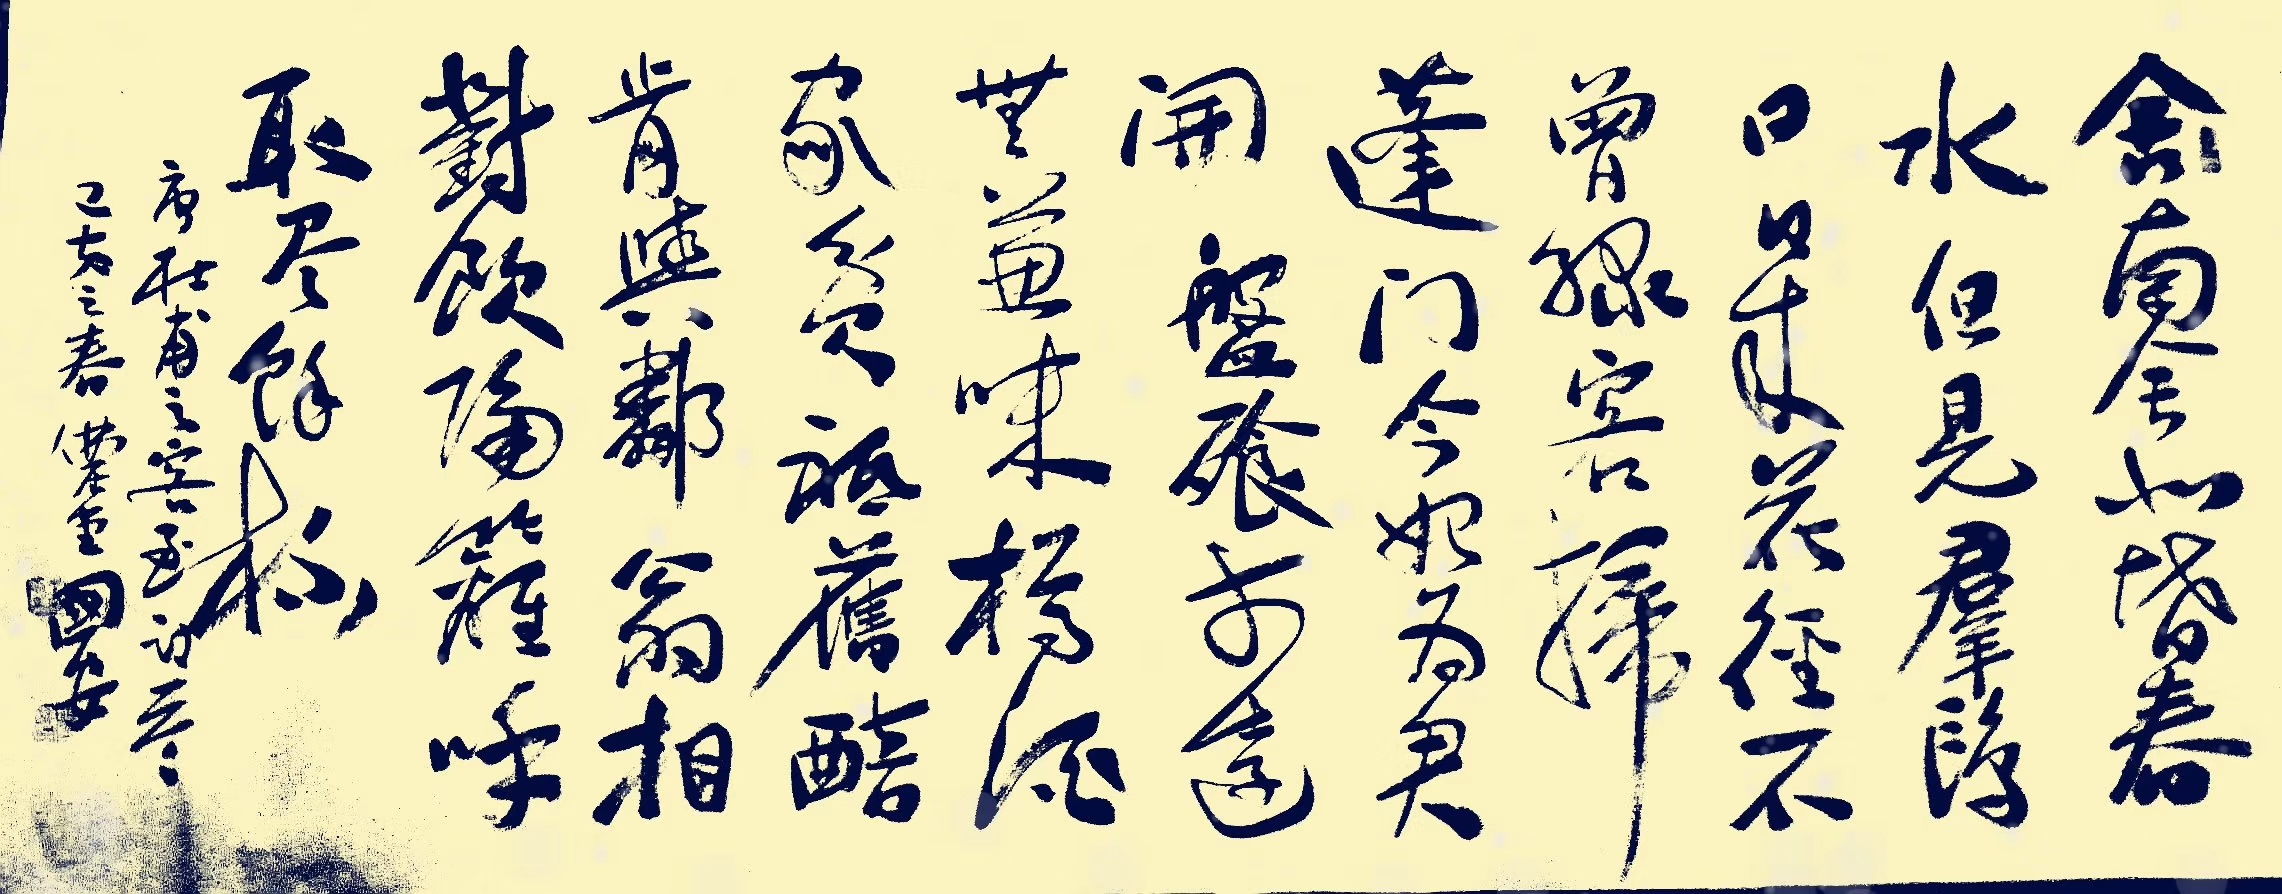 舍南舍北皆春
水但見羣鷗
日日来花徑不
曾緣客掃
蓬门今始为君
開盤飧市遠
無兼味樽酒
家貧祗舊醅
肯與鄰翁相
對飲隔籬呼
取尽餘杯
唐杜甫之客至诗
己亥之春國安